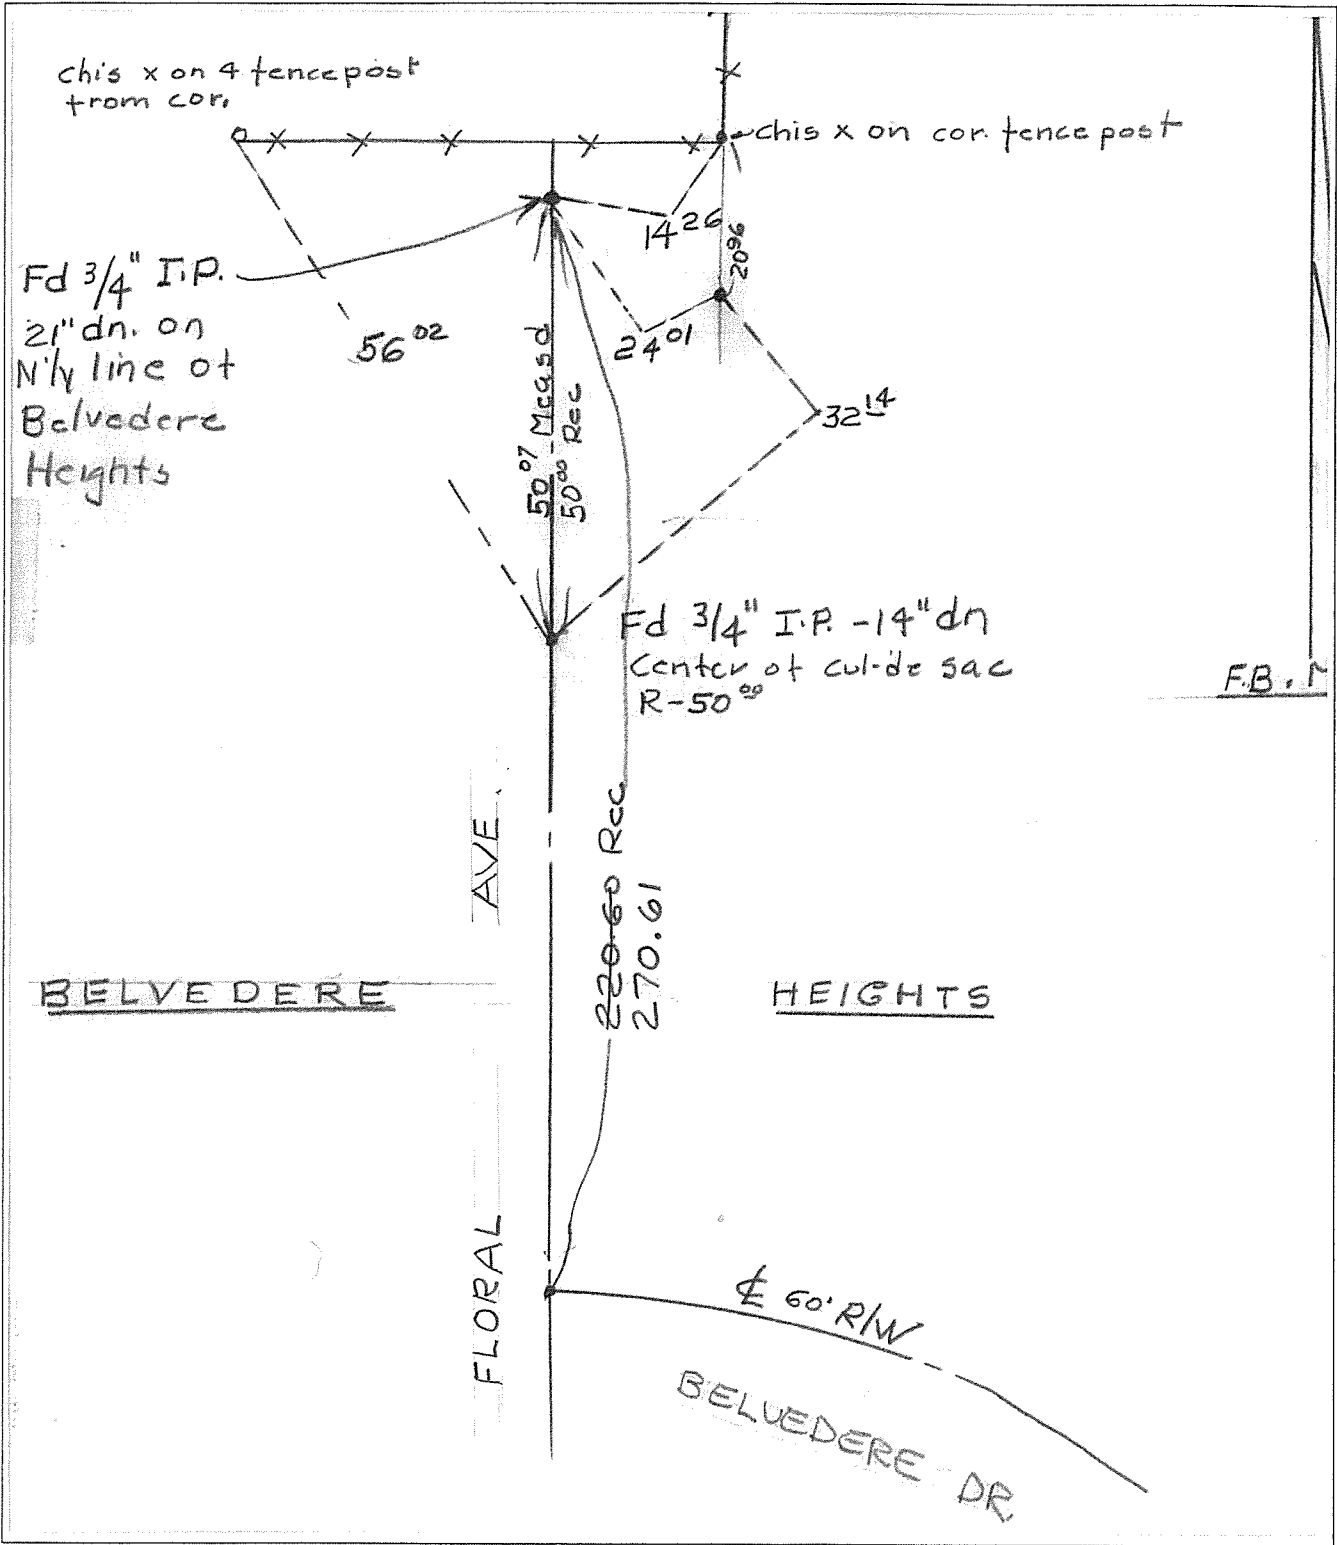 chis x on 4 fencepost
from cor.
chis x on cor. fence post
14 26
20 96
Fd 3/4" I.P.
21" dn. on
N'ly line of
Belvedere
Heights
56 02
24 01
50 07 Measd
50 00 Rec
32 14
Fd 3/4" I.P. -14" dn
Center of cul-de sac
R-50 00
F.B.
AVE.
220.60 Rec
270.61
BELVEDERE
HEIGHTS
FLORAL
℄ 60' R/W
BELVEDERE DR.